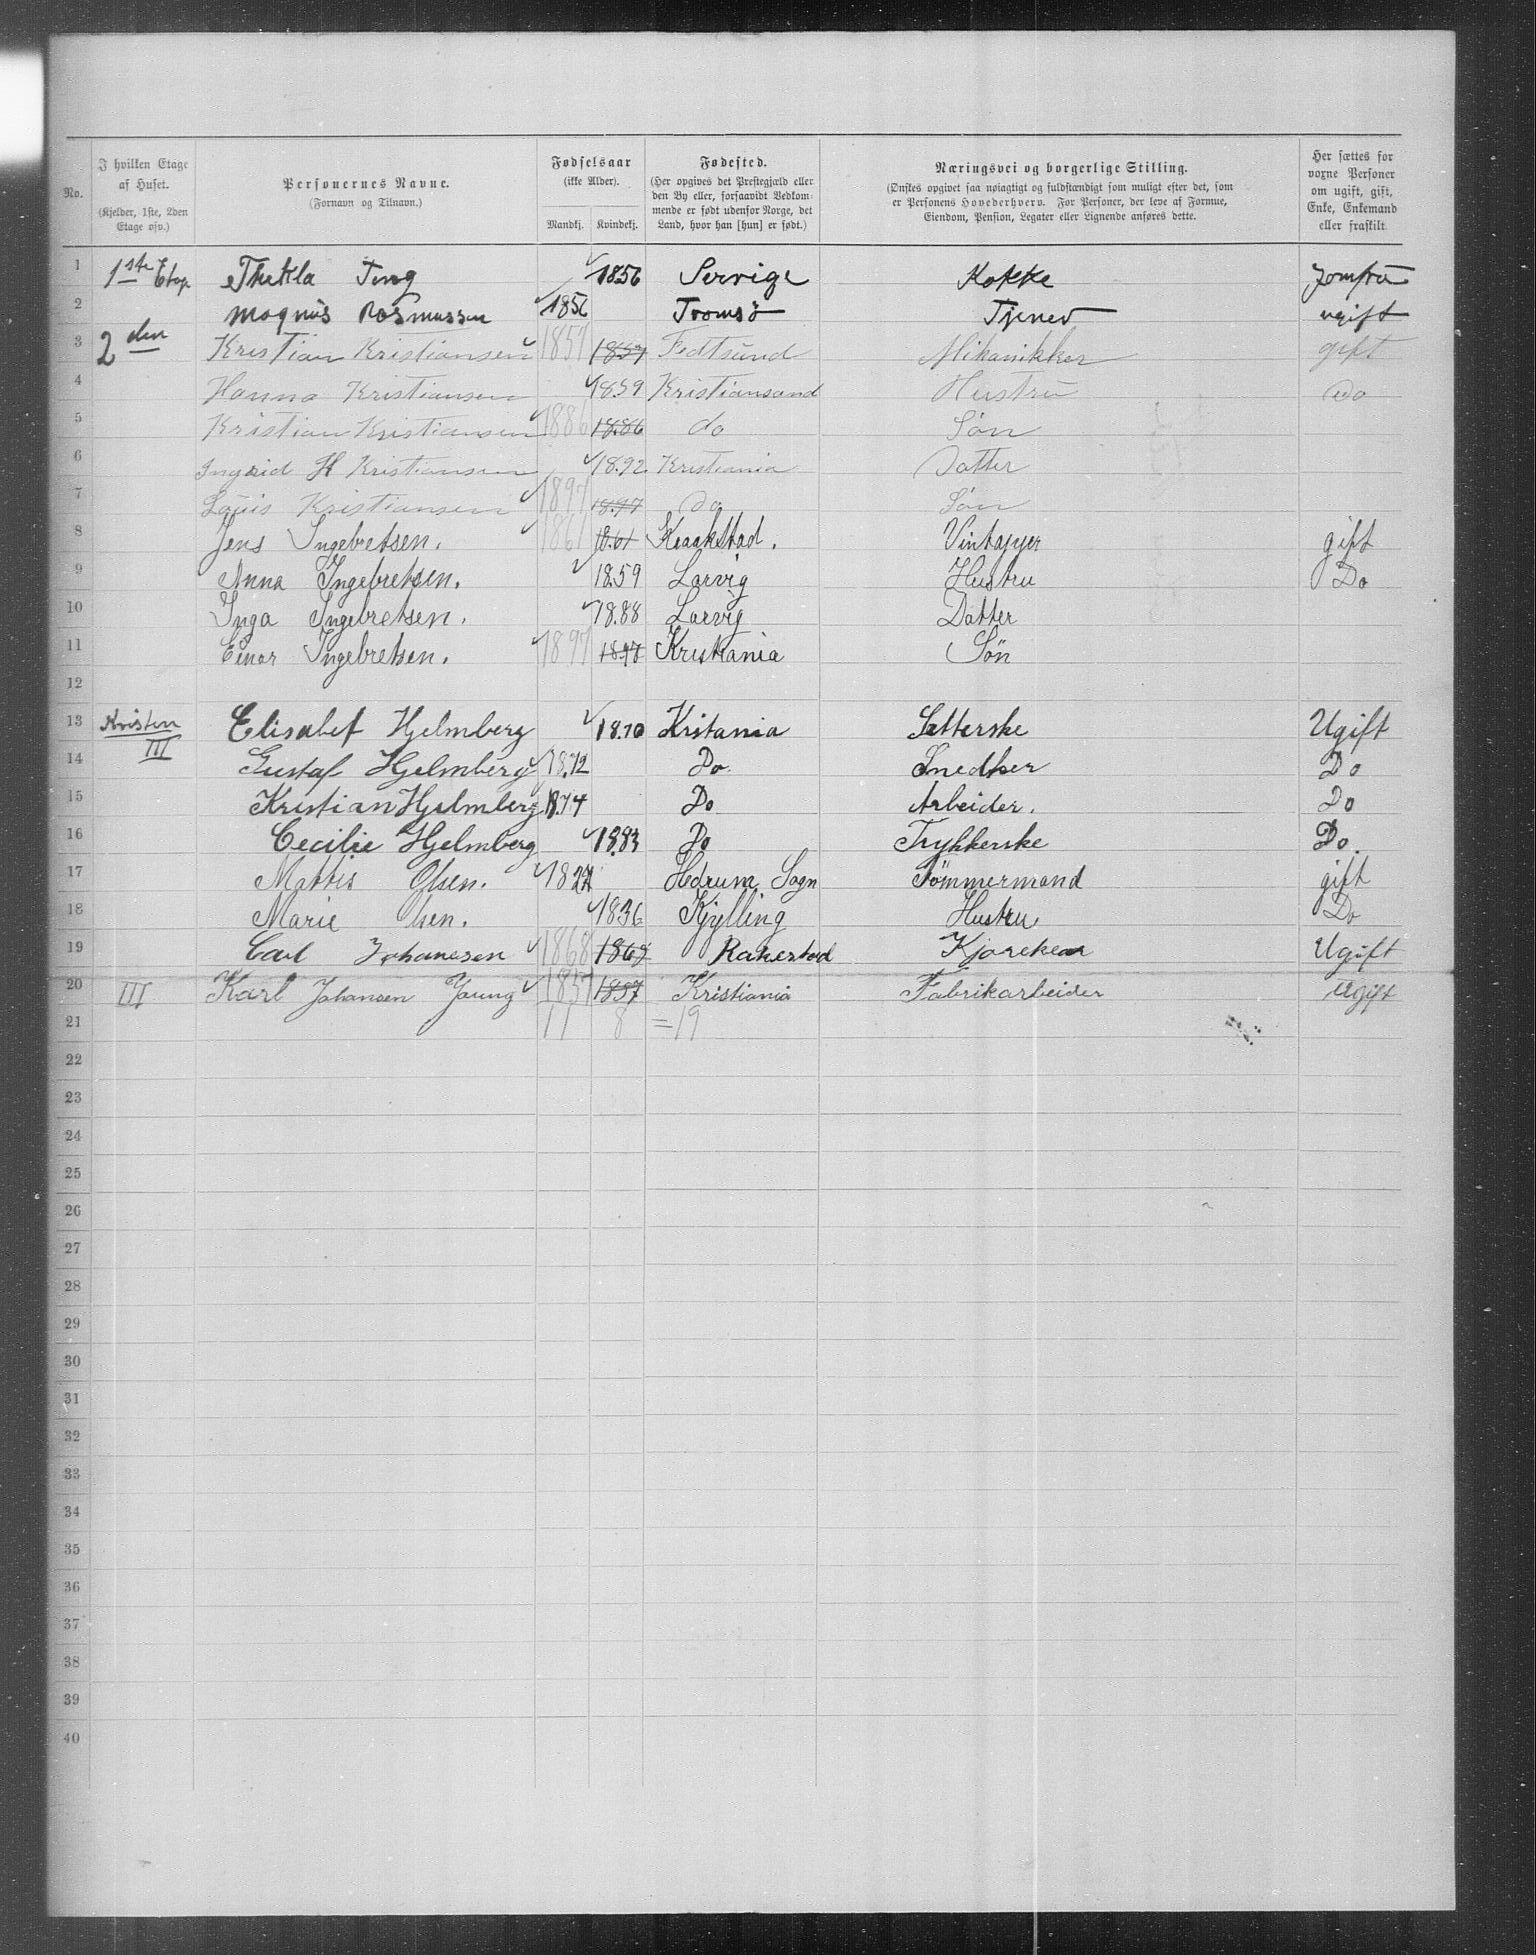 No.
I hvilken Etage af Huset. (Kjelder, 1ste, 2den Etage osv.)
Personernes Navne. (Fornavn og Tilnavn.)
Fødselsaar (ikke Alder). Mandkj. Kvindekj.
Fødested. (Her opgives det Prestegjæld eller den By eller, forsaavidt Vedkommende er født udenfor Norge, det Land, hvor han [hun] er født.)
Næringsvei og borgerlige Stilling. (Ønskes opgivet saa nøiagtigt og fuldstændigt som muligt efter det, som er Personens Hovederhverv. For Personer, der leve af Formue, Eiendom, Pension, Legater eller Lignende anføres dette.)
Her sættes for voxne Personer om ugift, gift, Enke, Enkemand eller fraskilt.
1 1ste Etag Thekla 1856 Kokke Jomfru
2 Magnus Rasmussen 1856 Tromsö Tjener ugift
3 2den Kristian Kristiansen 1857 1857 Fedtsund Mikanikker gift
4 Hanna Kristiansen 1859 Kristiansand Hustru Do
5 Kristian Kristiansen 1886 1886 do Søn
6 Ingrid H Kristiansen 1892 Kristiania Datter
7 Louis Kristiansen 1897 1897 Do Søn
8 Jens Ingebretsen. 1861 1861 Kraakstad. Vintapper gift
9 Anna Ingebretsen. 1859 Larvig Hustru Do
10 Inga Ingebretsen. 1888 Larvig Datter
11 Einar Ingebretsen. 1897 Kristiania Søn
12
13 Kvisten III Elisabet Hjelmberg 1870 Kristania Sætterske Ugift
14 Gustaf Hjelmberg 1872 Do Snedker Do
15 Kristian Hjelmberg 1874 Do Arbeider. Do
16 Cecilie Hjelmberg 1883 Do Trykkerske Do.
17 Mattis Olsen. Hedrum Sogn Tömmermand gift
18 Marie Olsen. 1836 Kjylling Hustru Do
19 Carl Johanesen 1868 1868 Rakestad Ugift
20 III Karl Johansen Young 1857 1857 Kristiania Fabrikarbeider Ugift
21 11 8 =19
22
23
24
25
26
27
28
29
30
31
32
33
34
35
36
37
38
39
40